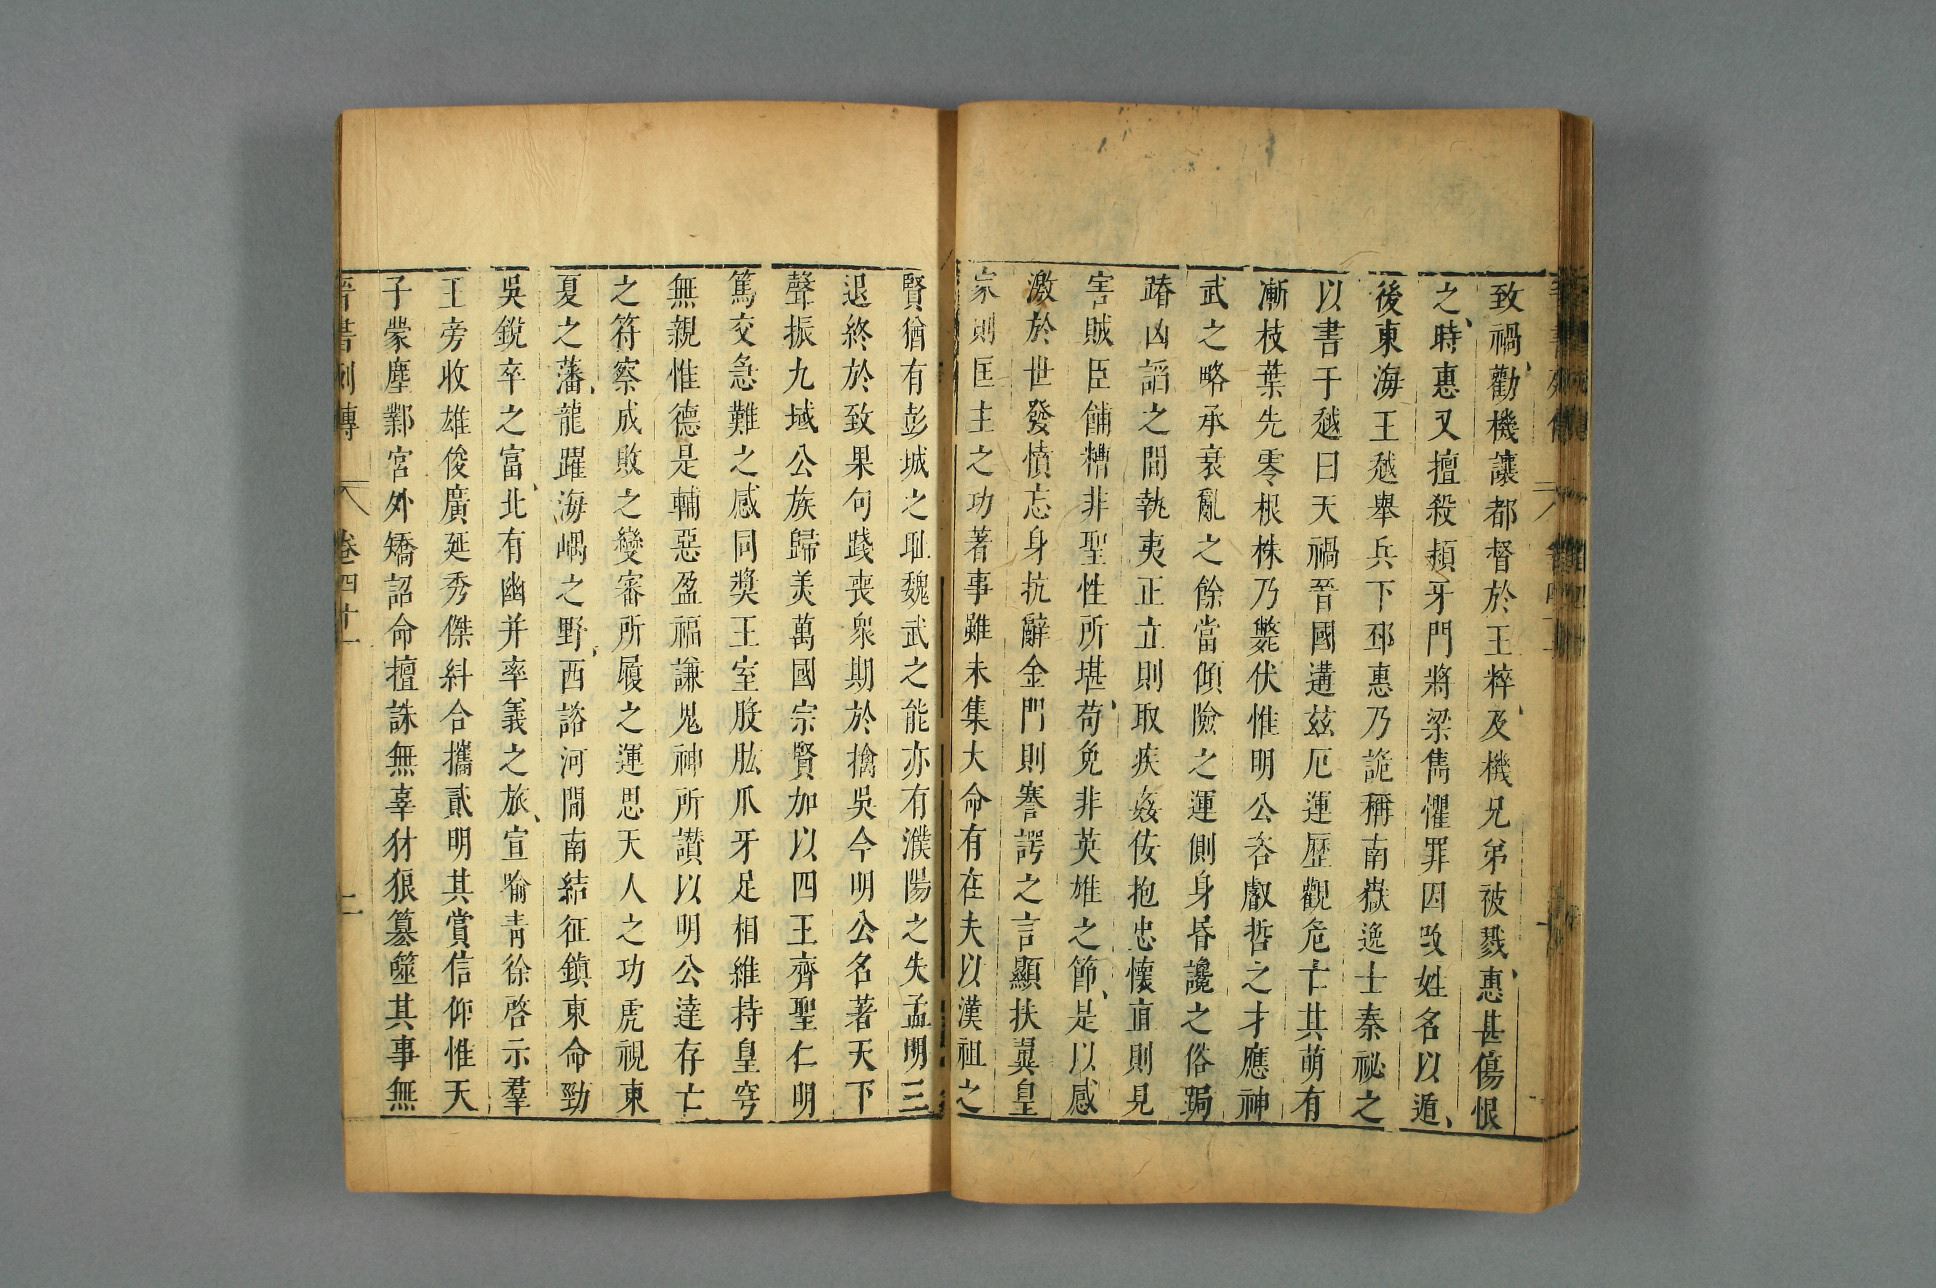 致禍勸機讓都督於王粹及機兄弟被戮惠甚傷恨
之時惠又擅殺熲牙門將梁儁懼罪因改姓名以遁
後東海王越舉兵下邳惠乃詭稱南嶽逸士秦祕之
以書于越曰天禍晉國遘茲厄運歷觀危亡其萌有
漸枝葉先零根株乃斃伏惟明公咨叡哲之才應神
武之略承衰亂之餘當傾險之運側身昏讒之俗跼
蹐凶諂之間執夷正立則取疾姦佞抱忠懷直則見
害賊臣餔糟非聖性所堪苟免非英雄之節是以感
激於世發憤忘身抗辭金門則謇諤之言顯扶翼皇
家則匡主之功著事雖未集大命有在夫以漢祖之
賢猶有彭城之耻魏武之能亦有濮陽之失孟明三
退終於致果句踐喪衆期於擒吳今明公名著天下
聲振九域公族歸美萬國宗賢加以四王齊聖仁明
篤交急難之感同奬王室股肱爪牙足相維持皇穹
無親惟德是輔惡盈福謙鬼神所讃以明公達存亡
之符察成敗之變審所履之運思天人之功虎視東
夏之藩龍躍海嵎之野西諮河間南結征鎮東命勁
吳銳卒之富北有幽并率義之旅宣喻青徐啓示羣
王旁收雄俊廣延秀傑糾合攜貳明其賞信仰惟天
子蒙塵鄴宮外矯詔命擅誅無辜豺狼簒噬其事無
晉書列傳 卷四十一